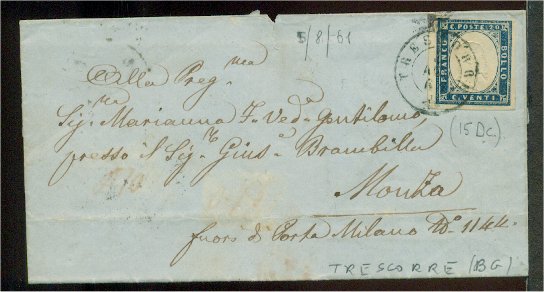 5/8/61
C. POSTE 20
FRANCO
BOLLO
C. VENTI
TRESCORRE
(15 Dc)
Alla Preg.ma
Sig.ra Marianna F. Ved.a Gentilomo,
presso il Sig.r Gius.e Brambilla
Monza
fuori di Porta Milano N.o 114
TRESCORRE (BG)